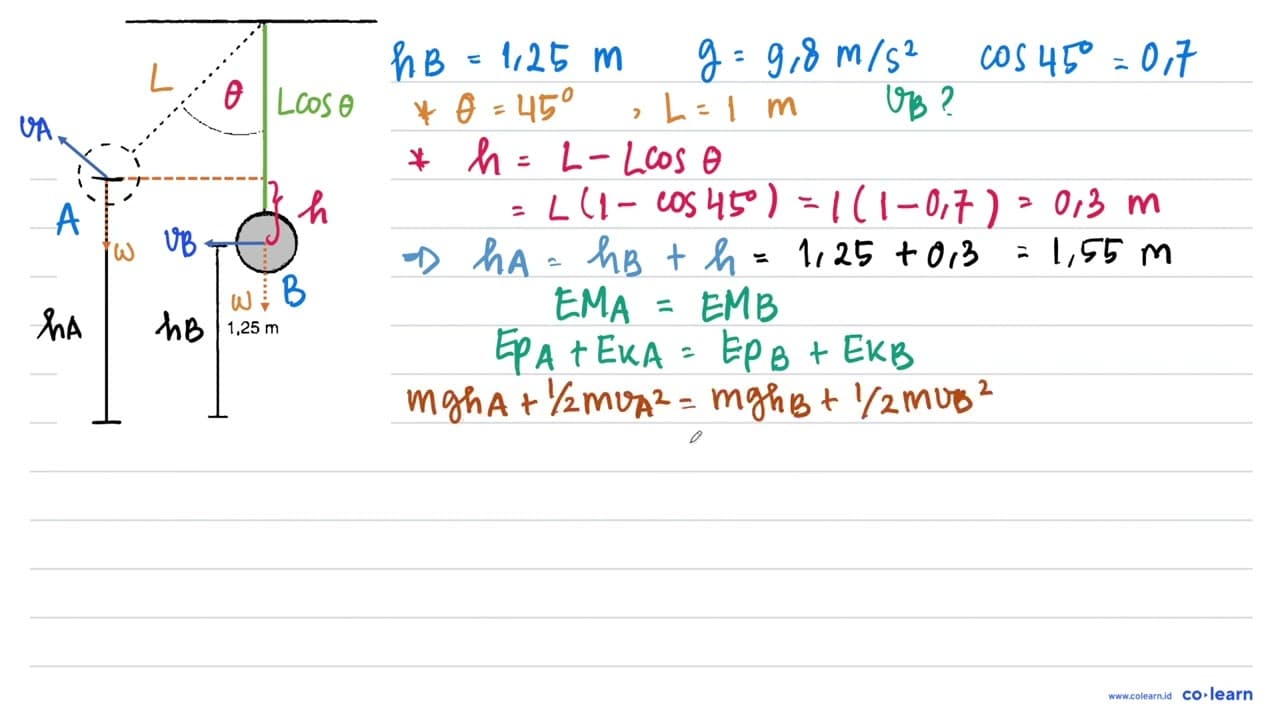 L
θ
L cos θ
vA
A
w
h
vB
w
B
hA
hB
1,25 m
hB = 1,25 m g = 9,8 m/s² cos 45° = 0,7
* θ = 45° , L = 1 m vB ?
* h = L - L cos θ
= L (1 - cos 45°) = 1 (1 - 0,7) = 0,3 m
⇒ hA = hB + h = 1,25 + 0,3 = 1,55 m
EMA = EMB
EPA + EKA = EPB + EKB
mghA + 1/2 mvA² = mghB + 1/2 mvB²
www.colearn.id co·learn